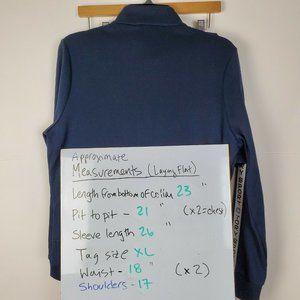 Approximate
Measurements (Laying Flat)
Length from bottom of collar 23 "
Pit to pit - 21 " (x2=chest)
Sleeve length 26 "
Tag size XL
Waist - 18 " (x2)
Shoulders - 17